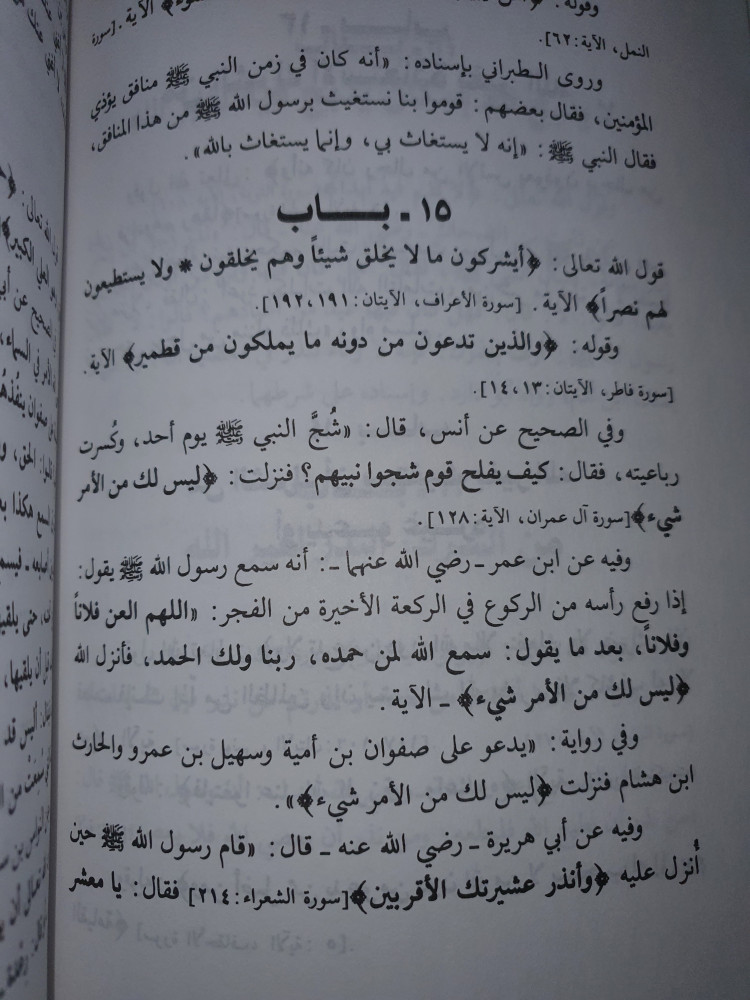 وقوله:
السوء﴾ الآية. [سورة
النمل، الآية: ٦٢].
وروى الـطبراني بإسناده: «أنه كان في زمن النبي ﷺ منافق يؤذي
المؤمنين، فقال بعضهم: قوموا بنا نستغيث برسول الله ﷺ من هذا المنافق،
فقال النبي ﷺ: «إنه لا يستغاث بي، وإنما يستغاث بالله».
١٥ ـ بـــاب
قول الله تعالى: ﴿أيشركون ما لا يخلق شيئاً وهم يخلقون * ولا يستطيعون
لهم نصراً﴾ الآية. [سورة الأعراف، الآيتان: ١٩١، ١٩٢].
وقوله: ﴿والذين تدعون من دونه ما يملكون من قطمير﴾ الآية.
[سورة فاطر، الآيتان: ١٣، ١٤].
وفي الصحيح عن أنس، قال: «شُجَّ النبي ﷺ يوم أحد، وكُسرت
رباعيته، فقال: كيف يفلح قوم شجوا نبيهم؟ فنزلت: ﴿ليس لك من الأمر
شيء﴾ [سورة آل عمران، الآية: ١٢٨].
وفيه عن ابن عمر ـ رضي الله عنهما ـ: أنه سمع رسول الله ﷺ يقول:
إذا رفع رأسه من الركوع في الركعة الأخيرة من الفجر: «اللهم العن فلاناً
وفلاناً، بعد ما يقول: سمع الله لمن حمده، ربنا ولك الحمد، فأنزل الله
﴿ليس لك من الأمر شيء﴾ ـ الآية.
وفي رواية: «يدعو على صفوان بن أمية وسهيل بن عمرو والحارث
ابن هشام فنزلت ﴿ليس لك من الأمر شيء﴾».
وفيه عن أبي هريرة ـ رضي الله عنه ـ قال: «قام رسول الله ﷺ حين
أُنزل عليه ﴿وأنذر عشيرتك الأقربين﴾ [سورة الشعراء: ٢١٤] فقال: يا معشر